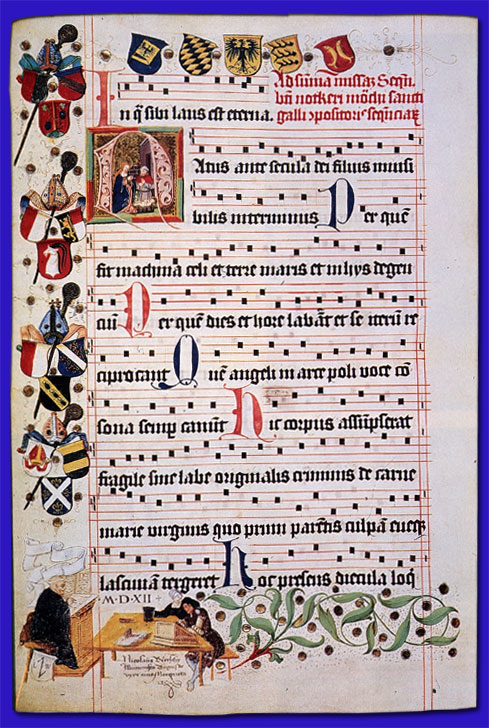 Ad sum̄a missaꝝ Sequ.
notkeri mōchi sancti
In q̄ sibi laus est eterna. galli
Natus ante secula dei filius inuisi
bilis interminus Per quē
fit machina celi et terre maris et in hijs degen
ciū Per quē dies et hore labāt et se iterū re
ciprocant Quē angeli in arce poli voce cō
sona semꝑ canūt Hic corpus assūpserat
fragile sine labe originalis criminis de carne
marie virginis quo primi parētis culpā eueqꝫ
lasciuiā tergeret Hoc presens diecula loq̄
·M·D·XII·
Nicolaus